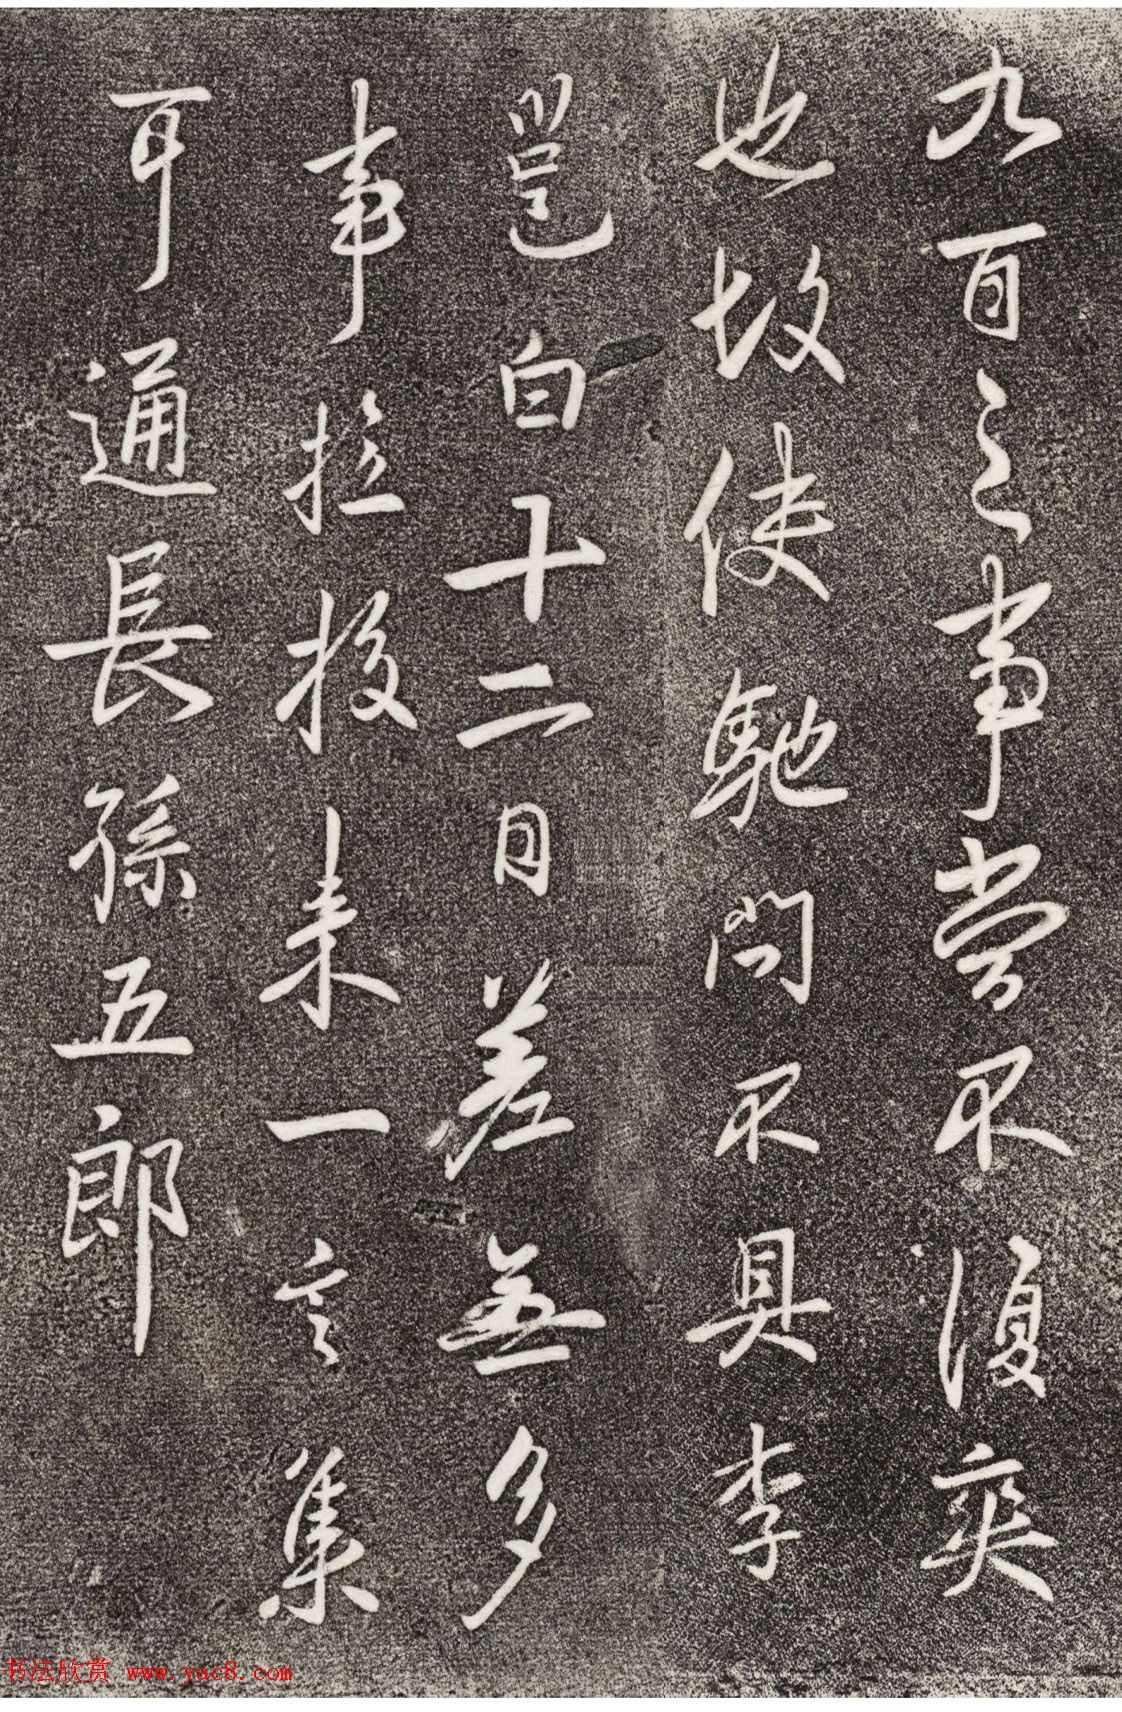 九百之事當不復爽
也故使馳問不具李
邕白十二日差無多
事擬投未一言集
耳通長孫五郎
书法欣赏 www.yac8.com